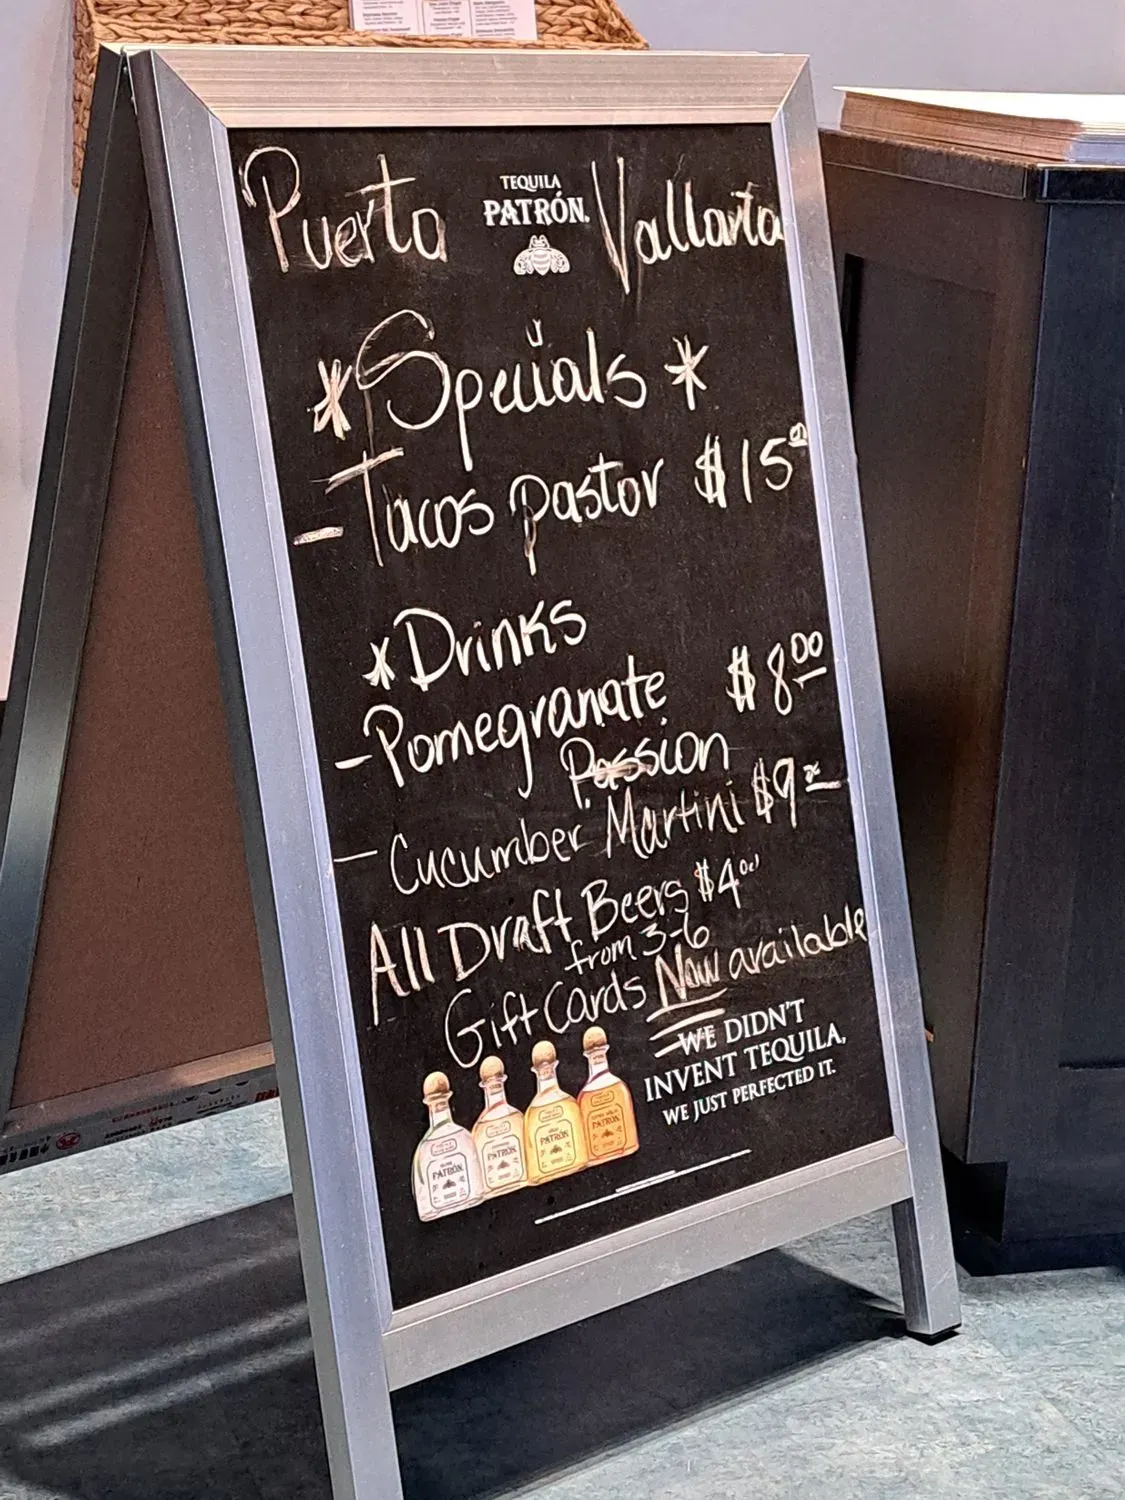 Puerto Vallarta
TEQUILA
PATRÓN.
*Specials*
- Tacos pastor $15.00
*Drinks
- Pomegranate $8.00
Passion
- Cucumber Martini $9.00
All Draft Beers $4.00
from 3-6
Gift Cards Now available
WE DIDN'T
INVENT TEQUILA,
WE JUST PERFECTED IT.
PATRÓN
PATRÓN
PATRÓN
PATRÓN